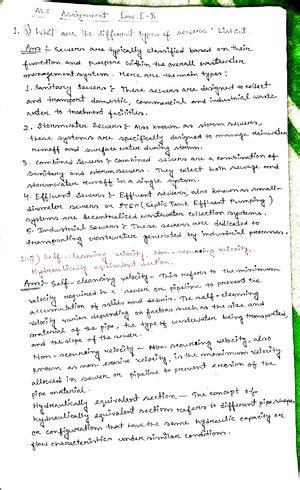 Assignment Env. E-II
1. i) What are the different types of sewers? List out.
Ans :- Sewers are typically classified based on their
function and purpose within the overall wastewater
management system. Here are the main types:
1. Sanitary Sewers :- These sewers are designed to collect
and transport domestic, commercial and industrial waste-
water to treatment facilities.
2. Stormwater Sewers :- Also known as storm sewers,
these systems are specifically designed to manage rainwater
runoff and surface water during storm.
3. Combined Sewers :- Combined sewers are a combination of
sanitary and storm sewers. They collect both sewage and
stormwater runoff in a single system.
4. Effluent Sewers :- Effluent sewers, also known as small-
diameter sewers or STEP (Septic Tank Effluent Pumping)
systems are decentralized wastewater collection systems.
5. Industrial Sewers :- These sewers are dedicated to
transporting wastewater generated by industrial processes.
Self-cleansing velocity, Non-scouring velocity,
Hydraulically equivalent section.
Ans:- Self-cleansing velocity - This refers to the minimum
velocity required in a sewer or pipeline to prevent the
accumulation of solids and debris. The self-cleansing
velocity varies depending on factors such as the size and
material of the pipe, the type of wastewater being transported,
and the slope of the sewer.
Non-scouring velocity - Non scouring velocity, also
known as non erosive velocity, is the maximum velocity
allowed in sewer or pipeline to prevent erosion of the
pipe material.
Hydraulically equivalent section - The concept of
hydraulically equivalent sections refers to different pipe shapes
or configurations that have the same hydraulic capacity or
flow characteristics under similar conditions.